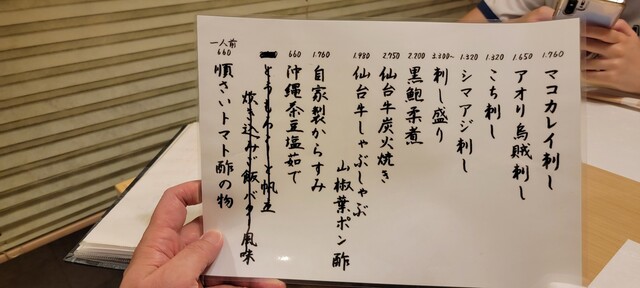 1.760 マコカレイ刺し
1.650 アオリ烏賊刺し
1.320 こち刺し
1.320 シマアジ刺し
3.300~ 刺し盛り
2.200 黒鮑柔煮
2.750 仙台牛炭火焼き
1.980 仙台牛しゃぶしゃぶ
山椒葉ポン酢
1.760 自家製からすみ
660 沖縄茶豆塩茹で
とうもろこしと帆立
炊き込みご飯バター風味
一人前
660 順さいトマト酢の物